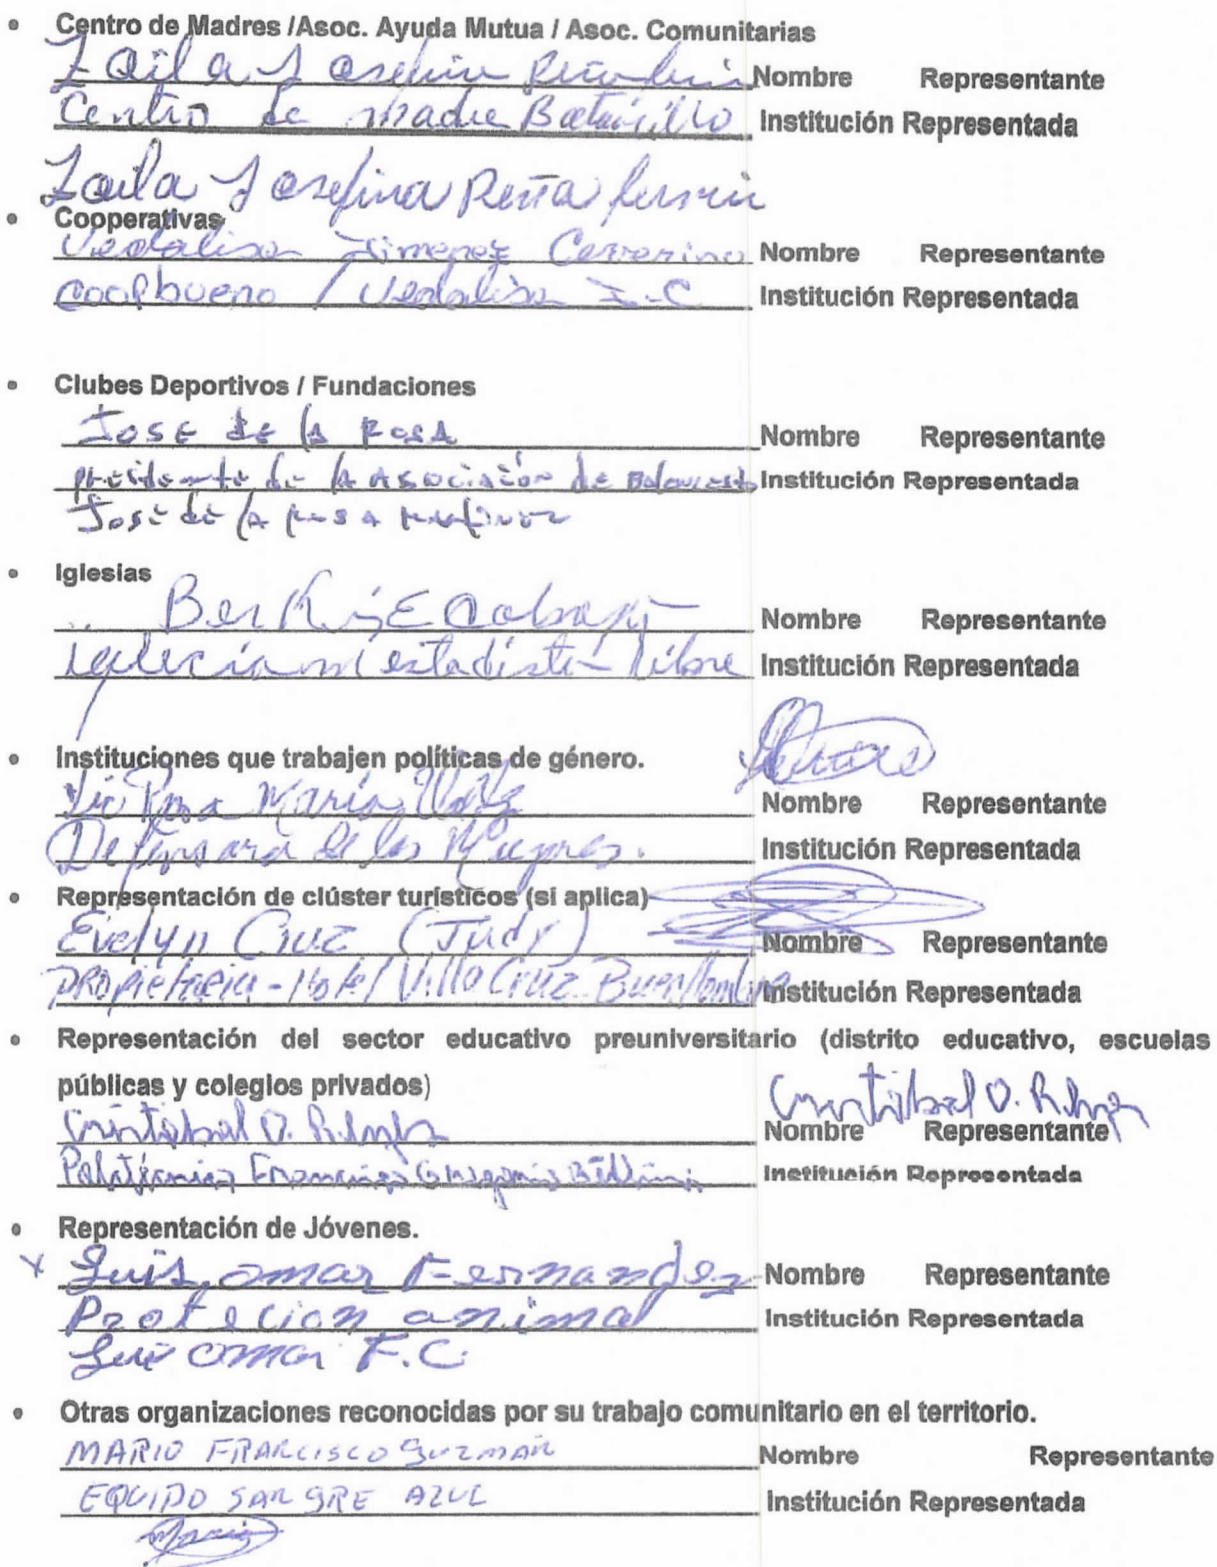 • Centro de Madres /Asoc. Ayuda Mutua / Asoc. Comunitarias
Zaila Josefina Peña Nombre Representante
Centro de Madre Batecillo Institución Representada
Zaila Josefina Peña
• Cooperativas
Vedalisa Jimenez Nombre Representante
coopbueno / Vedalisa J-C Institución Representada
• Clubes Deportivos / Fundaciones
Jose de la Rosa Nombre Representante
presidente de la Asociación de Baloncesto Institución Representada
José de la Rosa Martinez
• Iglesias
Berkis E Nombre Representante
iglecia metadista libre Institución Representada
• Instituciones que trabajen políticas de género.
Lic Rosa María Nombre Representante
Defensora de las Mujeres. Institución Representada
• Representación de clúster turísticos (si aplica)
Evelyn Cruz (Judy) Nombre Representante
propietaria - Hotel Villa Cruz Buen Hombre Institución Representada
• Representación del sector educativo preuniversitario (distrito educativo, escuelas
públicas y colegios privados)
Cristobal O. Cristobal O.
Nombre Representante
Politécnico Francisco Gregorio Billini Institución Representada
• Representación de Jóvenes.
x Luis omar Fernandez Nombre Representante
Protecion animal Institución Representada
Luis omar F.C.
• Otras organizaciones reconocidas por su trabajo comunitario en el territorio.
MARIO FRANCISCO GUZMAN Nombre Representante
EQUIPO SANGRE AZUL Institución Representada